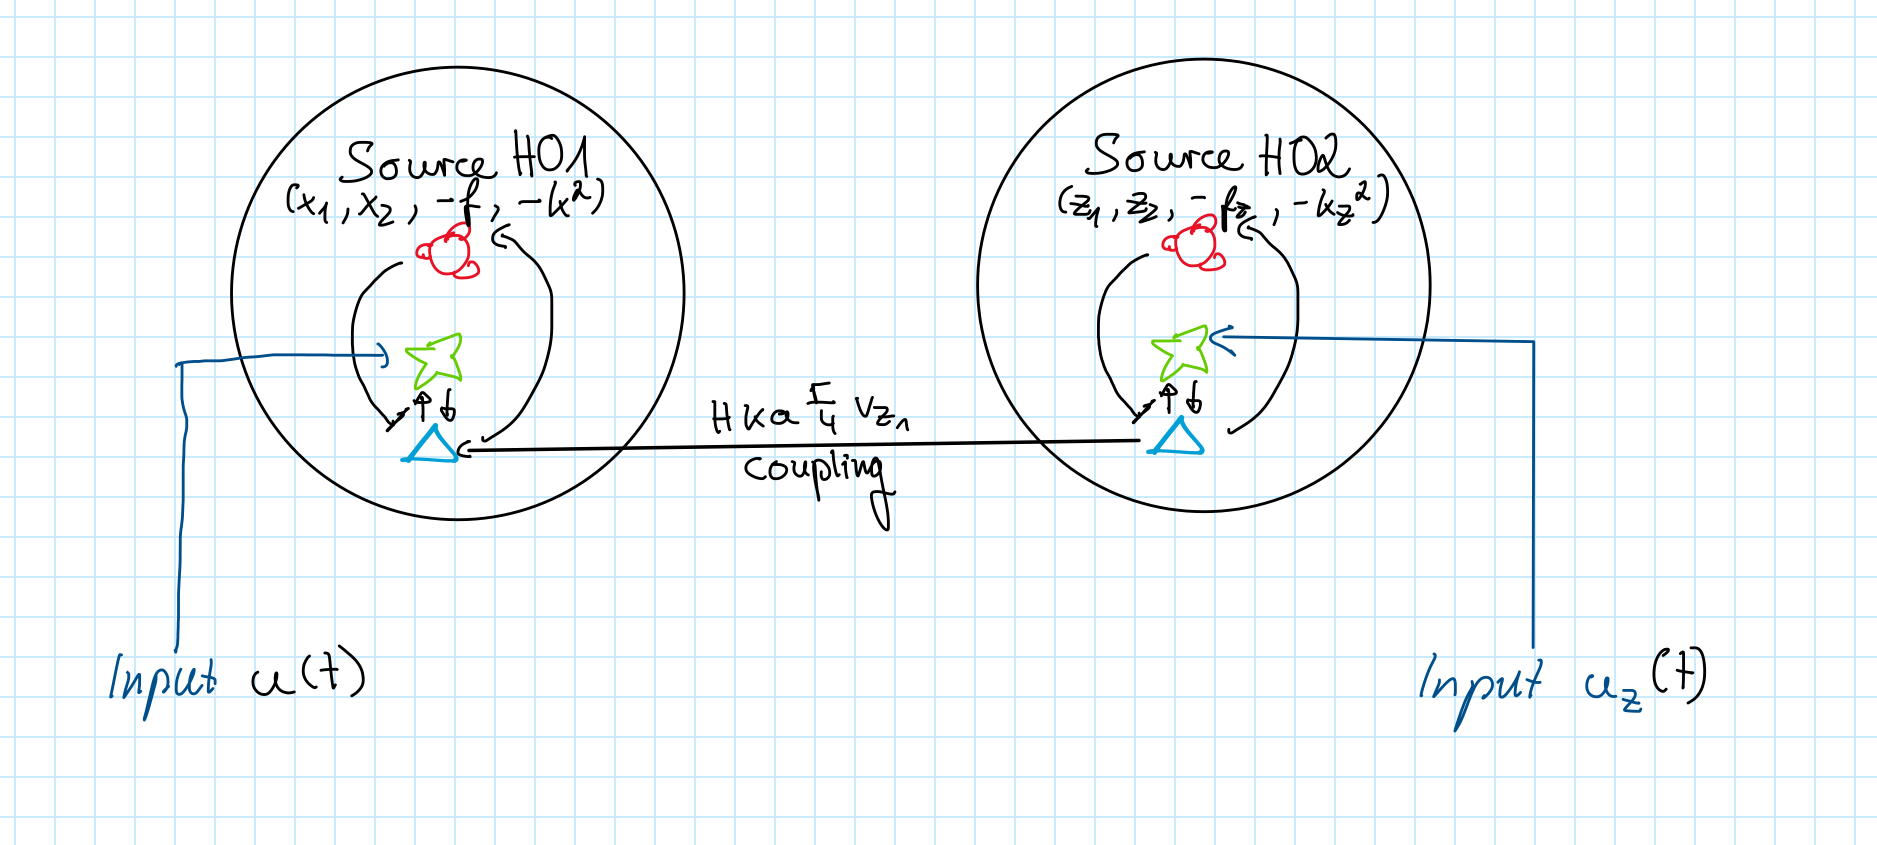 Source HO1
(x₁, x₂, -f, -k²)
Source HO2
(z₁, z₂, -f_z, -k_z²)
Hka
4 v_z₁
coupling
Input u(t)
Input u_z(t)